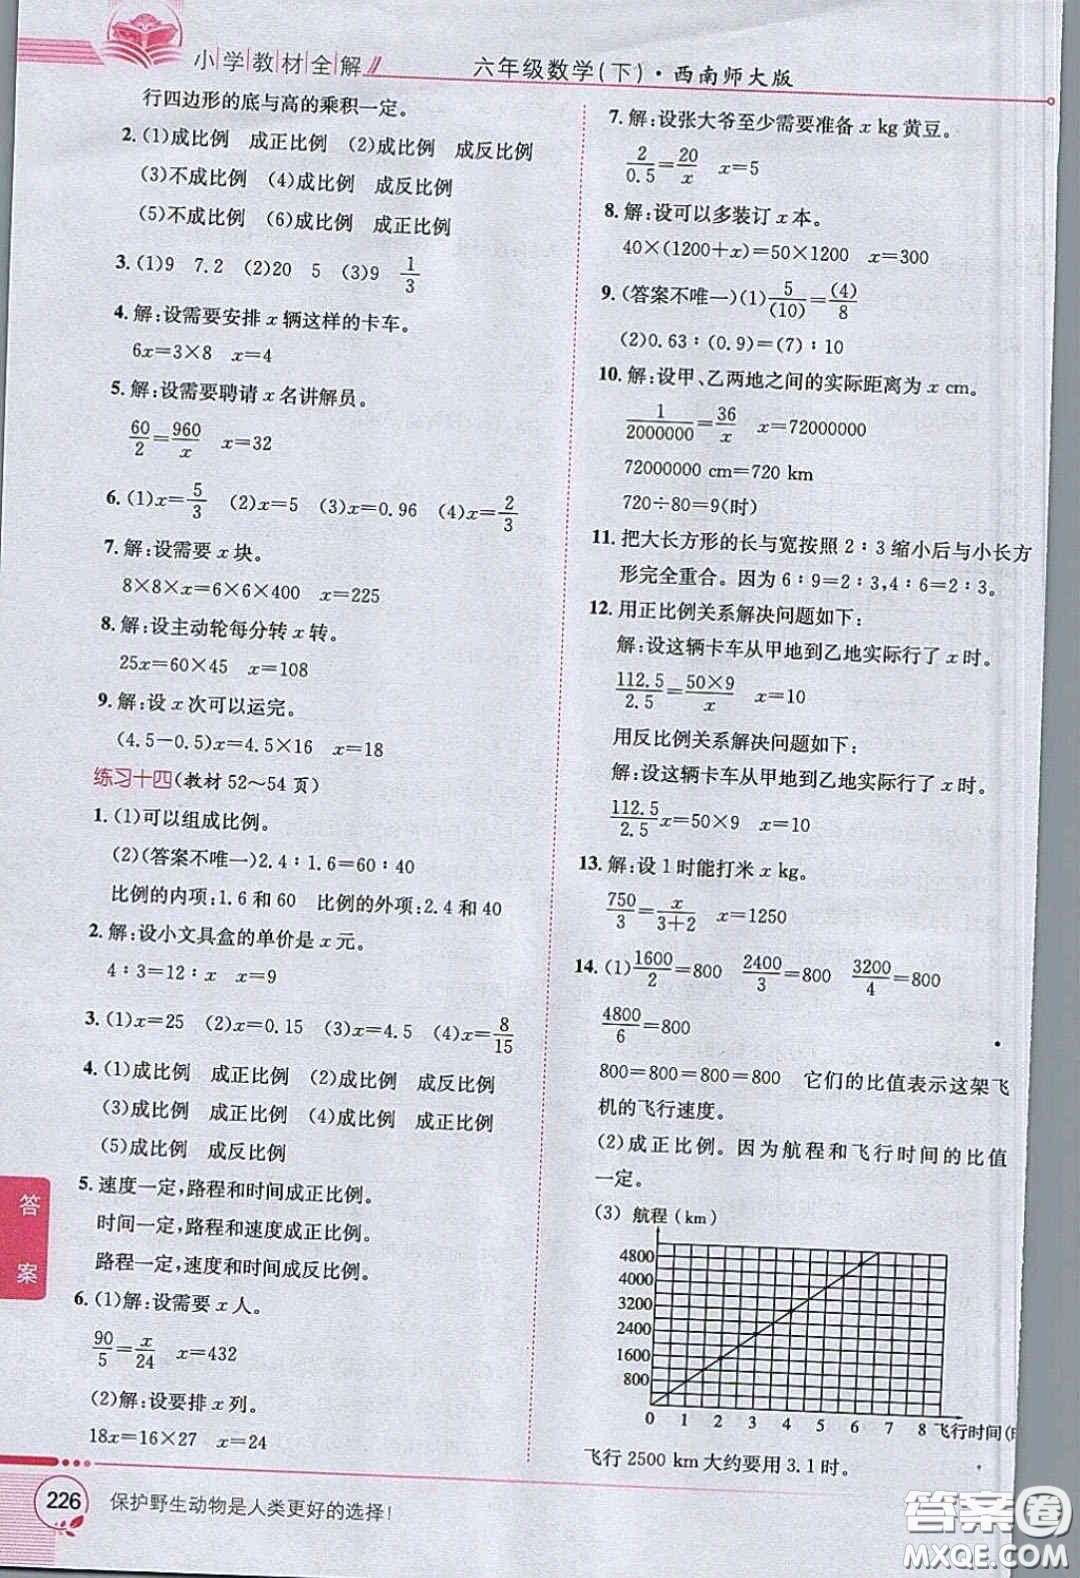 小学教材全解
六年级数学(下)·西南师大版
行四边形的底与高的乘积一定。
2. (1)成比例 成正比例 (2)成比例 成反比例
(3)不成比例 (4)成比例 成反比例
(5)不成比例 (6)成比例 成正比例
3. (1)9 7.2 (2)20 5 (3)9 1/3
4. 解:设需要安排 x 辆这样的卡车。
6x=3×8 x=4
5. 解:设需要聘请 x 名讲解员。
60/2=960/x x=32
6. (1)x=5/3 (2)x=5 (3)x=0.96 (4)x=2/3
7. 解:设需要 x 块。
8×8×x=6×6×400 x=225
8. 解:设主动轮每分转 x 转。
25x=60×45 x=108
9. 解:设 x 次可以运完。
(4.5-0.5)x=4.5×16 x=18
练习十四(教材 52~54 页)
1. (1)可以组成比例。
(2)(答案不唯一)2.4∶1.6=60∶40
比例的内项:1.6 和 60 比例的外项:2.4 和 40
2. 解:设小文具盒的单价是 x 元。
4∶3=12∶x x=9
3. (1)x=25 (2)x=0.15 (3)x=4.5 (4)x=8/15
4. (1)成比例 成正比例 (2)成比例 成反比例
(3)成比例 成正比例 (4)成比例 成正比例
(5)成比例 成反比例
5. 速度一定,路程和时间成正比例。
时间一定,路程和速度成正比例。
路程一定,速度和时间成反比例。
6. (1)解:设需要 x 人。
90/5=x/24 x=432
(2)解:设要排 x 列。
18x=16×27 x=24
7. 解:设张大爷至少需要准备 x kg 黄豆。
2/0.5=20/x x=5
8. 解:设可以多装订 x 本。
40×(1200+x)=50×1200 x=300
9. (答案不唯一)(1)5/(10)=(4)/8
(2)0.63∶(0.9)=(7)∶10
10. 解:设甲、乙两地之间的实际距离为 x cm。
1/2000000=36/x x=72000000
72000000 cm=720 km
720÷80=9(时)
11. 把大长方形的长与宽按照 2∶3 缩小后与小长方
形完全重合。因为 6∶9=2∶3,4∶6=2∶3。
12. 用正比例关系解决问题如下:
解:设这辆卡车从甲地到乙地实际行了 x 时。
112.5/2.5=50×9/x x=10
用反比例关系解决问题如下:
解:设这辆卡车从甲地到乙地实际行了 x 时。
112.5/2.5x=50×9 x=10
13. 解:设 1 时能打米 x kg。
750/3=x/3+2 x=1250
14. (1)1600/2=800 2400/3=800 3200/4=800
4800/6=800
800=800=800=800 它们的比值表示这架飞
机的飞行速度。
(2)成正比例。因为航程和飞行时间的比值
一定。
(3) 航程(km)
4800
4000
3200
2400
1600
800
0 1 2 3 4 5 6 7 8 飞行时间(时
飞行 2500 km 大约要用 3.1 时。
答案
226
保护野生动物是人类更好的选择!
答案圈
MXQE.COM